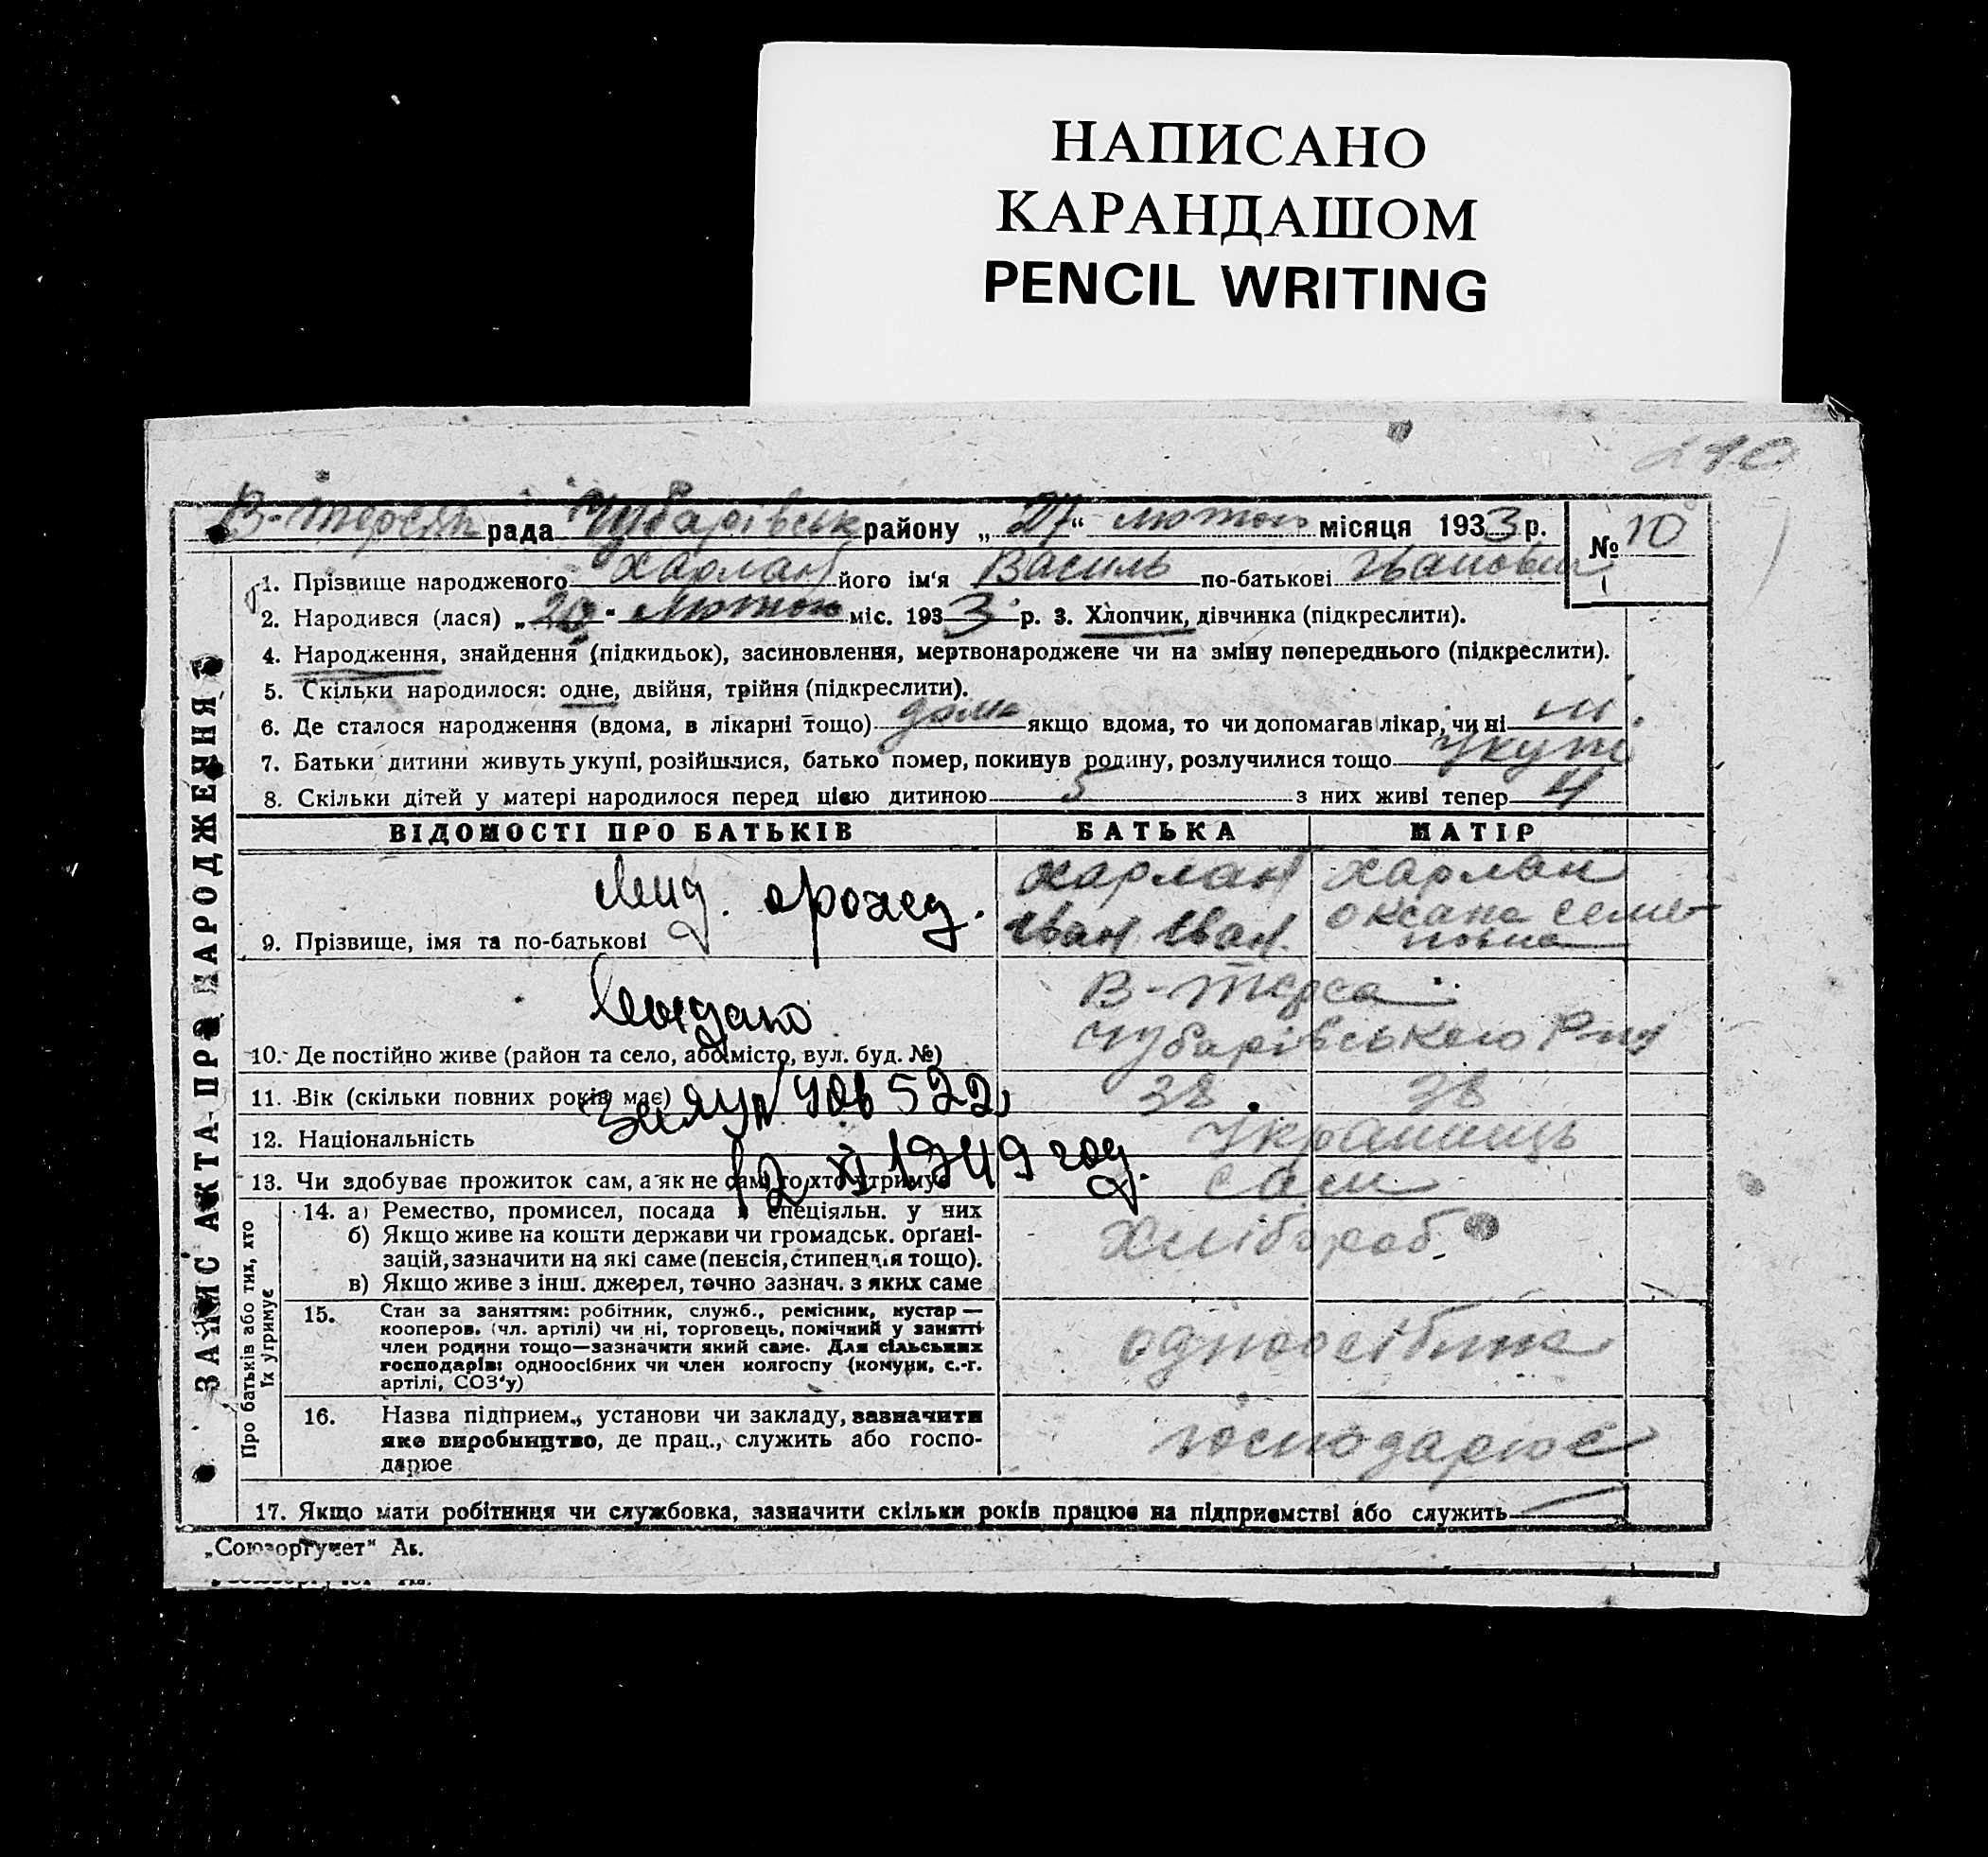 НАПИСАНО
КАРАНДАШОМ
PENCIL WRITING
В-Терсян рада Чубарівськ району „27“ лютого місяця 1933 р. № 10
1. Прізвище народженого Харлан його ім'я Василь по-батькові Іванович
2. Народився (лася) „20“ лютого міс. 1933 р. 3. Хлопчик, дівчинка (підкреслити).
4. Народження, знайдення (підкидьок), засиновлення, мертвонароджене чи на зміну попереднього (підкреслити).
5. Скільки народилося: одне, двійня, трійня (підкреслити).
6. Де сталося народження (вдома, в лікарні тощо) дома якщо вдома, то чи допомагав лікар, чи ні ні
7. Батьки дитини живуть укупі, розійшлися, батько помер, покинув родину, розлучилися тощо укупі
8. Скільки дітей у матері народилося перед цією дитиною 5 з них живі тепер 4
ЗАПИС АКТА ПРО НАРОДЖЕННЯ
ВІДОМОСТІ ПРО БАТЬКІВ БАТЬКА МАТІР
Харлан Харлан
Іван Іван. Оксана Семе-
9. Прізвище, імя та по-батькові повна
В-Терса
Чубарівського
10. Де постійно живе (район та село, або місто, вул. буд. №)
11. Вік (скільки повних років має) 38 38
12. Національність Українець
12 XI 1949 год.
13. Чи здобуває прожиток сам, а як не сам, то хто утримує сам
Про батьків або тих, хто
їх утримує
14. а) Ремество, промисел, посада й спеціяльн. у них
б) Якщо живе на кошти держави чи громадськ. орґані-
зацій, зазначити на які саме (пенсія, стипендія тощо). Хлібороб
в) Якщо живе з інш. джерел, точно зазнач. з яких саме
15. Стан за заняттям: робітник, служб., ремісник, кустар —
кооперов. (чл. артілі) чи ні, торговець, помічний у занятті
член родини тощо—зазначити який саме. Для сільських одноосібник
господарів: одноосібних чи член колгоспу (комуни, с.-г.
артілі, СОЗ'у)
16. Назва підприєм., установи чи закладу, зазначити
яке виробництво, де прац., служить або госпо- господарює
дарює
17. Якщо мати робітниця чи службовка, зазначити скільки років працює на підприємстві або служить —
„Союзоргучет“